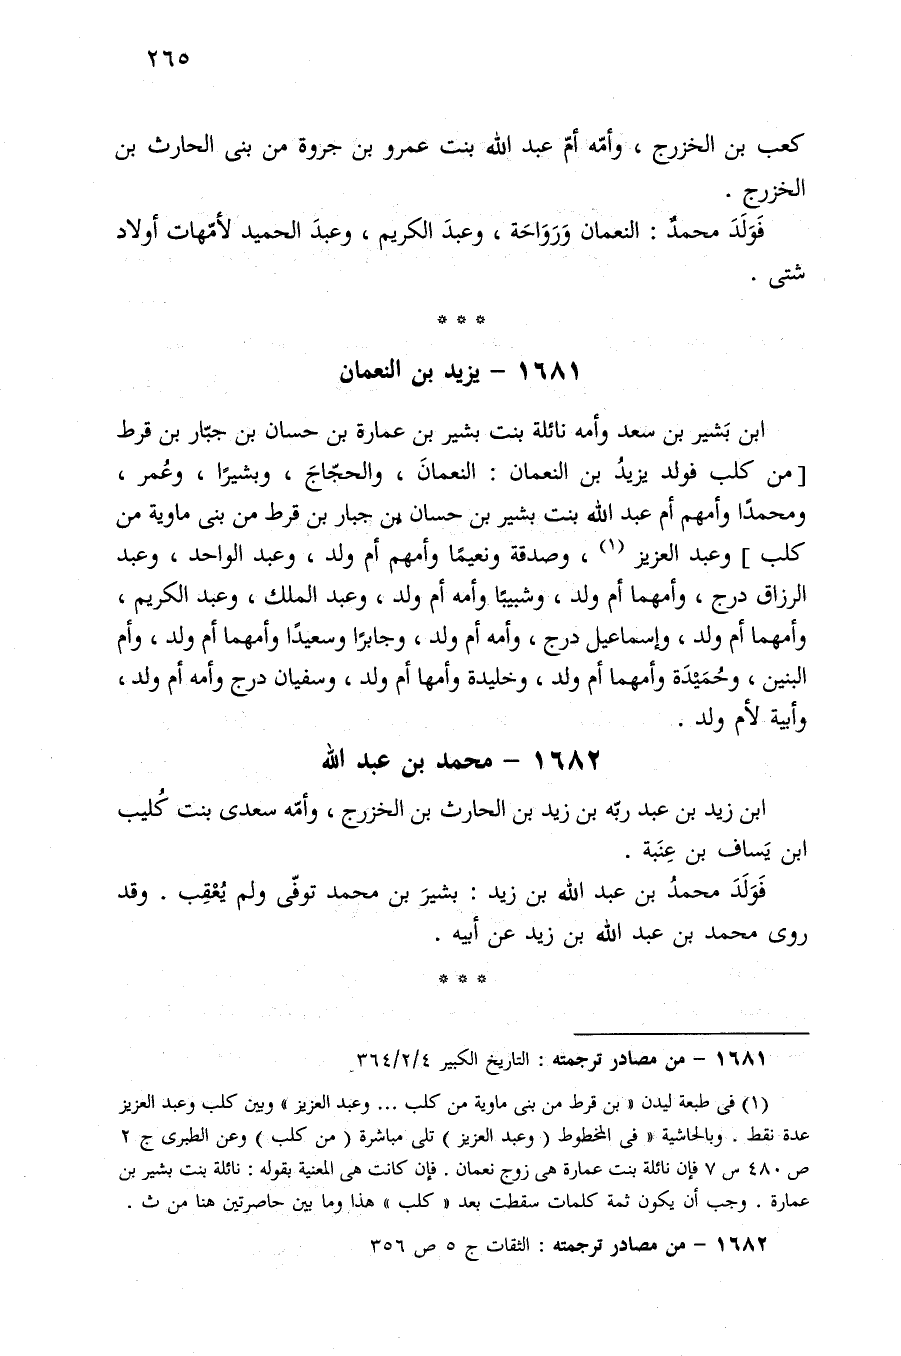 ٢٦٥
كعب بن الخزرج ، وأمّه أمّ عبد الله بنت عمرو بن جروة من بنى الحارث بن
الخزرج .
فَوَلَدَ محمدٌ : النعمان وَرَوَاحَة ، وعبدَ الكريم ، وعبدَ الحميد لأمّهات أولاد
شتى .
* * *
١٦٨١ - يزيد بن النعمان
ابن بَشير بن سعد وأمه نائلة بنت بشير بن عمارة بن حسان بن جبّار بن قرط
[ من كلب فولد يزيدُ بن النعمان : النعمانَ ، والحجّاجَ ، وبشيرًا ، وعُمر ،
ومحمدًا وأمهم أم عبد الله بنت بشير بن حسان بن جبار بن قرط من بنى ماوية من
كلب ] وعبد العزيز (١) ، وصدقة ونعيمًا وأمهم أم ولد ، وعبد الواحد ، وعبد
الرزاق درج ، وأمهما أم ولد ، وشبيبًا وأمه أم ولد ، وعبد الملك ، وعبد الكريم ،
وأمهما أم ولد ، وإسماعيل درج ، وأمه أم ولد ، وجابرًا وسعيدًا وأمهما أم ولد ، وأم
البنين ، وحُمَيْدَة وأمهما أم ولد ، وخليدة وأمها أم ولد ، وسفيان درج وأمه أم ولد ،
وأبية لأم ولد .
١٦٨٢ - محمد بن عبد الله
ابن زيد بن عبد ربّه بن زيد بن الحارث بن الخزرج ، وأمّه سعدى بنت كُليب
ابن يَساف بن عِنَبة .
فَوَلَدَ محمدُ بن عبد الله بن زيد : بشيرَ بن محمد توفّى ولم يُعْقِب . وقد
روى محمد بن عبد الله بن زيد عن أبيه .
* * *
١٦٨١ - من مصادر ترجمته : التاريخ الكبير ٣٦٤/٢/٤
(١) فى طبعة ليدن « بن قرط من بنى ماوية من كلب ... وعبد العزيز » وبين كلب وعبد العزيز
عدة نقط . وبالحاشية « فى المخطوط ( وعبد العزيز ) تلى مباشرة ( من كلب ) وعن الطبرى ج ٢
ص ٤٨٠ س ٧ فإن نائلة بنت عمارة هى زوج نعمان . فإن كانت هى المعنية بقوله : نائلة بنت بشير بن
عمارة . وجب أن يكون ثمة كلمات سقطت بعد « كلب » هذا وما بين حاصرتين هنا من ث .
١٦٨٢ - من مصادر ترجمته : الثقات ج ٥ ص ٣٥٦